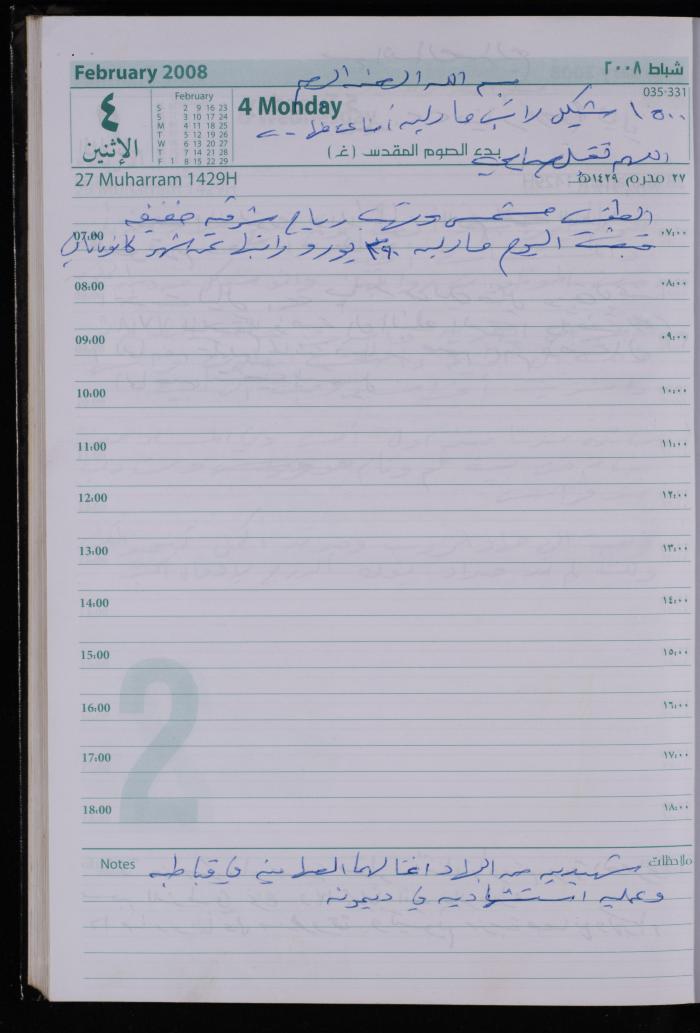 February 2008
شباط ٢٠٠٨
بسم الله الرحمن الرحيم
035-331
٤
الإثنين
February
S 2 9 16 23
S 3 10 17 24
M 4 11 18 25
T 5 12 19 26
W 6 13 20 27
T 7 14 21 28
F 1 8 15 22 29
4 Monday
١٥٠٠ شيكل راتب مارليه
بدء الصوم المقدس (غ)
اللهم تقبل
27 Muharram 1429H
٢٧ محرم ١٤٢٩هـ
الطقس مشمس ورياح شرقية خفيفة
07:00
٠٧:٠٠
قبضت اليوم مارليه ٣٩٠ يورو راتبا عن شهر كانون ثاني
08:00
٠٨:٠٠
09:00
٠٩:٠٠
10:00
١٠:٠٠
11:00
١١:٠٠
12:00
١٢:٠٠
13:00
١٣:٠٠
14:00
١٤:٠٠
15:00
١٥:٠٠
16:00
١٦:٠٠
17:00
١٧:٠٠
18:00
١٨:٠٠
2
Notes
ملاحظات
شهيدين من الجهاد اغتالهما الصهاينة في قباطيه
وعمليه استشهاديه في ديمونه